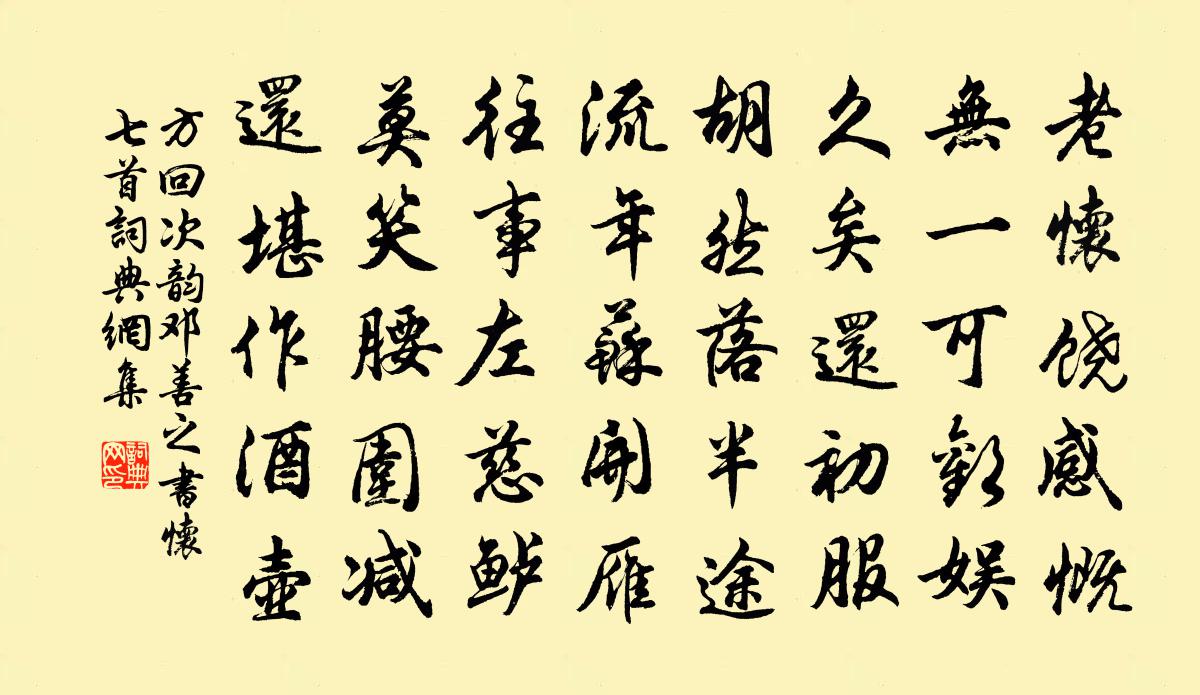 老懷饶感慨
無一可歡娱
久矣還初服
胡然落半途
流年蘇開雁
往事左慈鲈
莫笑腰圍减
還堪作酒壺
方回次韵邓善之書懷
七首詞典網集
詞典网印